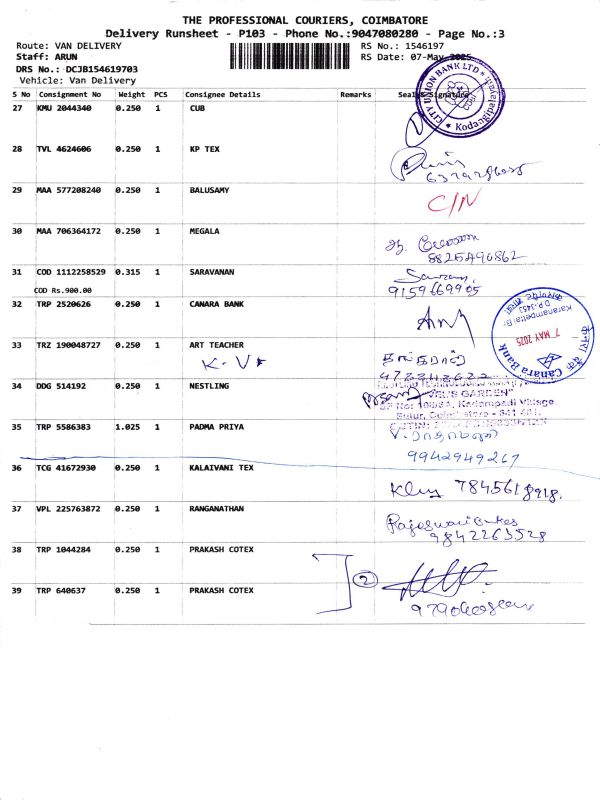 THE PROFESSIONAL COURIERS, COIMBATORE
Delivery Runsheet - P103 - Phone No.:9047080280 - Page No.:3
Route: VAN DELIVERY RS No.: 1546197
Staff: ARUN RS Date: 07-May-2025
DRS No.: DCJB154619703
Vehicle: Van Delivery
S No Consignment No Weight PCS Consignee Details Remarks Seal & Signature
CITY UNION BANK LTD
27 KMU 2044340 0.250 1 CUB
28 TVL 4624606 0.250 1 KP TEX
29 MAA 577208240 0.250 1 BALUSAMY C/N
30 MAA 706364172 0.250 1 MEGALA
8825490862
31 COD 1112258529 0.315 1 SARAVANAN
COD Rs.900.00 9159669905
32 TRP 2520626 0.250 1 CANARA BANK
Karanampettai Br.
D.P.3453
7 MAY 2025
Canara Bank
33 TRZ 190048727 0.250 1 ART TEACHER
K.V
34 DDG 514192 0.250 1 NESTLING
GARDEN"
Kadampadi Village,
35 TRP 5586383 1.025 1 PADMA PRIYA
9942949267
36 TCG 41672930 0.250 1 KALAIVANI TEX
7845618918.
37 VPL 225763872 0.250 1 RANGANATHAN
9842263528
38 TRP 1044284 0.250 1 PRAKASH COTEX
2
39 TRP 640637 0.250 1 PRAKASH COTEX